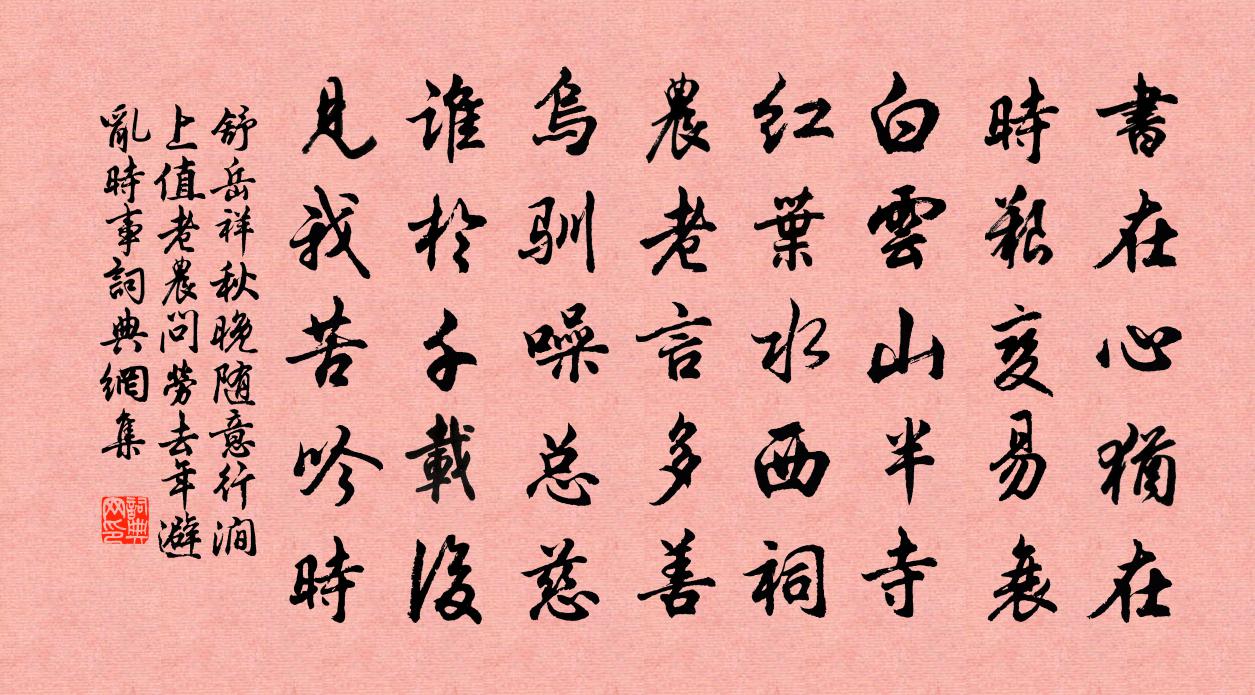 書在心猶在
時艱變易衰
白雲山半寺
紅葉水西祠
農老言多善
烏馴噪总慈
誰於千載後
見我苦吟時
舒岳祥秋晚随意行澗
上值老農問勞去年避
亂時事詞典網集
詞典
网印